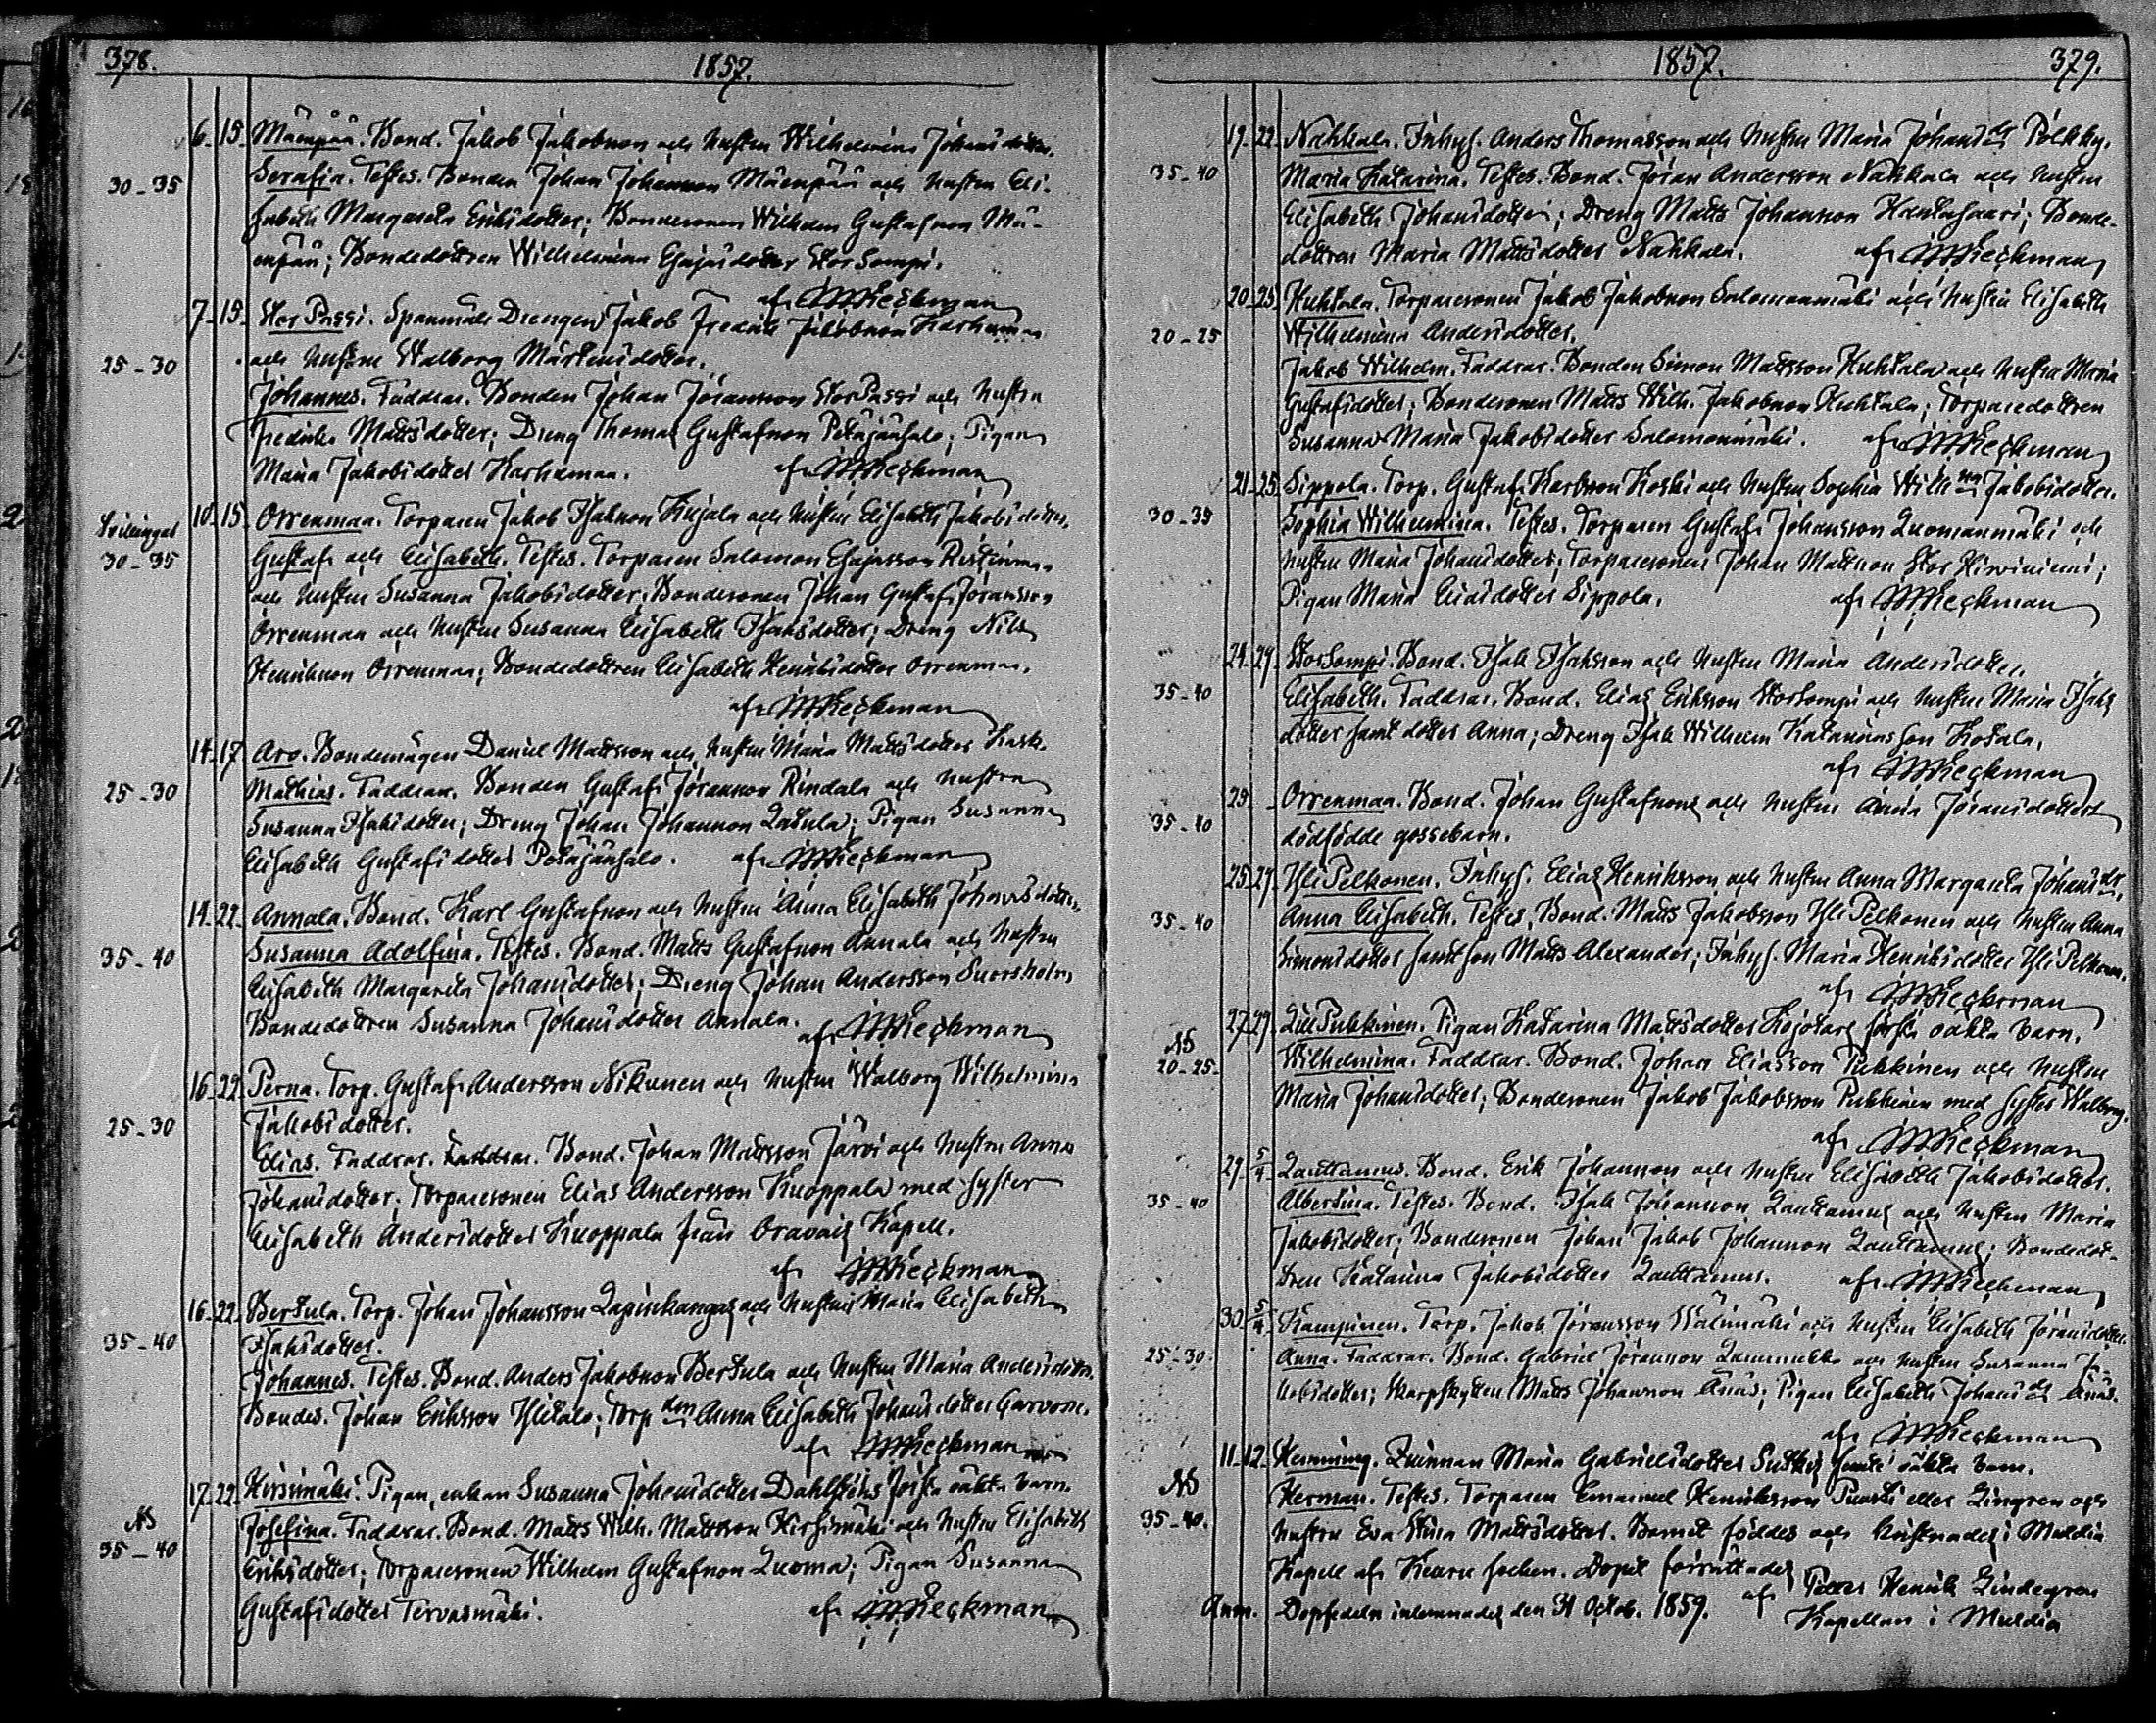 378.
1857.
6. 15. Mäenpää. Bond. Jakob Jakobsson och hustru Wilhelmina Johansdotter.
30-35 Serafia. Testes. Bonden Johan Johansson Mäenpää och hustru Eli-
sabeth Margareta Eriksdotter; Bondesonen Wilhelm Gustafsson Mä-
enpää; Bondedottren Wilhelmina Esajasdotter StorSompi.
af MWeckman
7. 15. Stor Passi. Spannmåls Drengen Jakob Fredrik Jakobsson Karhumaa
25-30 och hustru Walborg Mårtensdotter.
Johannes. Faddrar. Bonden Johan Jöransson StorPassi och hustru
Fredrika Mattsdotter; Dreng Thomas Gustafsson Petäjänsalo; Pigan
Maria Jakobsdotter Karhamaa. af MWeckman
10. 15. Orrenmaa. Torparen Jakob Isaksson Kujala och hustru Elisabeth Jakobsdotter.
Tvilingar
30-35 Gustaf och Elisabeth. Testes. Torparen Salomon Esajasson Ristinmaa
och hustru Susanna Jakobsdotter; Bondesonen Johan Gustaf Jöransson
Orrenmaa och hustru Susanna Elisabeth Isaksdotter; Dreng Nils
Henriksson Orrenmaa; Bondedottren Elisabeth Henriksdotter Orrenmaa.
af MWeckman
14. 17. Aro. Bondemågen Daniel Mattsson och hustru Maria Mattsdotter Kask.
25-30 Mathias. Faddrar. Bonden Gustaf Jöransson Rindala och hustru
Susanna Isaksdotter; Dreng Johan Johansson Latula; Pigan Susanna
Elisabeth Gustafsdotter Petäjänsalo. af MWeckman
14. 22. Annala. Bond. Karl Gustafsson och hustru Anna Elisabeth Johansdotter.
35-40 Susanna Adolfina. Testes. Bond. Matts Gustafsson Annala och hustru
Elisabeth Margareta Johansdotter; Dreng Johan Andersson Suorsholm
Bondedottren Susanna Johansdotter Annala.
af MWeckman
16. 22. Perna. Torp. Gustaf Andersson Nikunen och hustru Walborg Wilhelmina
25-30 Jakobsdotter.
Elias. Faddrar. Faddrar. Bond. Johan Mattsson Järvi och hustru Anna
Johansdotter; Torparesonen Elias Andersson Knoppala med syster
Elisabeth Andersdotter Knoppala från Oravais Kapell.
af MWeckman
16. 22. Bertula. Torp. Johan Johansson Lapinkangas och hustru Maria Elisabeth
35-40 Isaksdotter.
Johannes. Testes. Bond. Anders Jakobsson Bertula och hustru Maria Andersdotter.
Bondes. Johan Eriksson Ylitalo; Torp den Anna Elisabeth Johansdotter Garvone.
af MWeckman
17. 22. Hirsimäki. Pigan, enkan Susanna Johansdotter Dahlströms första oäkta barn.
NB
35-40 Josefina. Faddrar. Bond. Matts Wilh. Mattsson Hirsimäki och hustru Elisabeth
Eriksdotter; Torparesonen Wilhelm Gustafsson Luoma; Pigan Susanna
Gustafsdotter Tervasmäki. af MWeckman
1857. 379.
19. 22. Nahkala. Inhys. Anders Thomasson och hustru Maria Johans dr Pölkky.
35-40 Maria Katarina. Testes. Bond. Jöran Andersson Nahkala och hustru
Elisabeth Johansdotter; Dreng Matts Johansson Kantasaari; Bonde-
dottren Maria Mattsdotter Nahkala. af MWeckman
20. 25. Huhtala. Torparesonen Jakob Jakobsson Salomonmäki och hustru Elisabeth
20-25 Wilhelmina Andersdotter.
Jakob Wilhelm. Faddrar. Bonden Simon Mattsson Huhtala och hustru Maria
Gustafsdotter; Bondesonen Matts Wilh. Jakobsson Huhtala; Torparedottren
Susanna Maria Jakobsdotter Salomonmäki. af MWeckman
21. 25. Sippola. Torp. Gustaf Karlsson Koski och hustru Sophia Wilh na Jakobsdotter.
30-35 Sophia Wilhelmina. Testes. Torparen Gustaf Johansson Luomanmäki och
hustru Maria Johansdotter; Torparesonen Johan Mattsson Stor Hirviniemi;
Pigan Maria Eliasdotter Sippola. af MWeckman
24. 29. StorSompi. Bond. Isak Isaksson och hustru Maria Andersdotter.
35-40 Elisabeth. Faddrar. Bond. Elias Eriksson StorSompi och hustru Maria Isaks
dotter samt dotter Anna; Dreng Isak Wilhelm Katarinas son Kotala.
af MWeckman
29. - Orrenmaa. Bond. Johan Gustafssons och hustru Anna Jöransdotters
35-40 dödfödde gossebarn.
25. 29. YliPelkonen. Inhys. Elias Henriksson och hustru Anna Margareta Johans dr.
35-40 Anna Elisabeth. Testes. Bond. Matts Jakobsson YliPelkonen och hustru Anna
Simonsdotter samt son Matts Alexander; Inhys. Maria Henriksdotter YliPelkonen.
af MWeckman
27. 29. LillPukkinen. Pigan Katarina Mattsdotter Kojolars första oäkta barn.
NB
20-25 Wilhelmina. Faddrar. Bond. Johan Eliasson Pukkinen och hustru
Maria Johansdotter; Bondesonen Jakob Jakobsson Pukkinen med syster Walborg.
af MWeckman
29. 5/4 Lauttamus. Bond. Erik Johansson och hustru Elisabeth Jakobsdotter.
35-40 Albertina. Testes. Bond. Isak Johansson Lauttamus och hustru Maria
Jakobsdotter; Bondesonen Johan Jakob Johansson Lauttamus; Bondedot-
tren Katarina Jakobsdotter Lauttamus. af MWeckman
30. 5/4 Kampinen. Torp. Jakob Jöransson Wälimäki och hustru Elisabeth Jöransdotter.
25-30 Anna. Faddrar. Bond. Gabriel Jöransson Lammukka och hustru Susanna Ja-
kobsdotter; Skarpskytten Matts Johansson Änäs; Pigan Elisabeth Johans dr Änäs.
af MWeckman
11. 12. Hemming. Qvinnan Maria Gabrielsdotter oäkta barn.
NB
35-40. Herman. Testes. Torparen Emanuel Henriksson eller Lingren och
hustru Eva Stina Mattsdotter. Barnet föddes och kristnades i Muldia
Kapell af Keuru socken. Dopet förrättades
af Petter Henrik Lindegren
Anm. Dopsedeln inlemnades den 31 Octob. 1859. Kapellan i Muldia